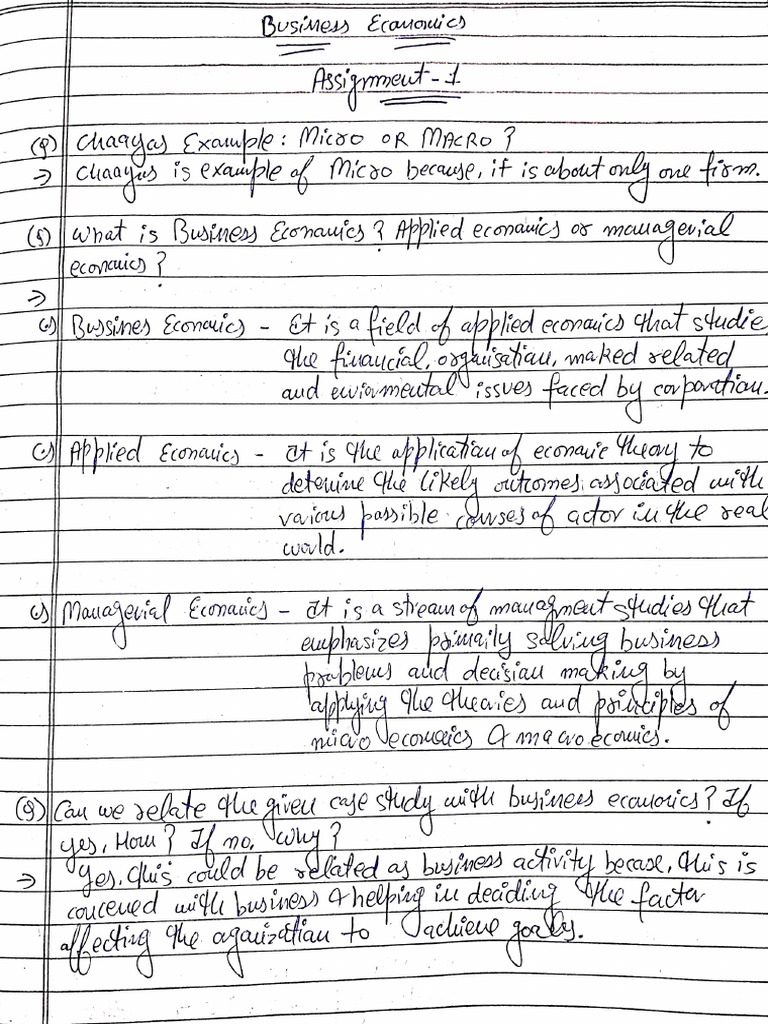 Business Economics
Assignment-1
(Q) Chaayos Example: Micro OR MACRO?
⇒ Chaayos is example of Micro because, it is about only one firm.
(Q) What is Business Economics? Applied economics or managerial
economics?
⇒
Bussines Economics - It is a field of applied economics that studie
the financial, organisation, maked related
and enviormental issues faced by corporation.
Applied Economics - It is the application of economic theory to
determine the likely outcomes associated with
various possible courses of actor in the real
world.
Managerial Economics - It is a stream of managment studies that
emphasizes primaily solving business
problems and decision making by
applying the theories and principles of
micro economics & macro economics.
(Q) Can we relate the given case study with business economics? If
yes, How? If no, why?
⇒ Yes, this could be related as business activity becase, this is
concened with business & helping in deciding the factor
affecting the aganization to achieve goals.